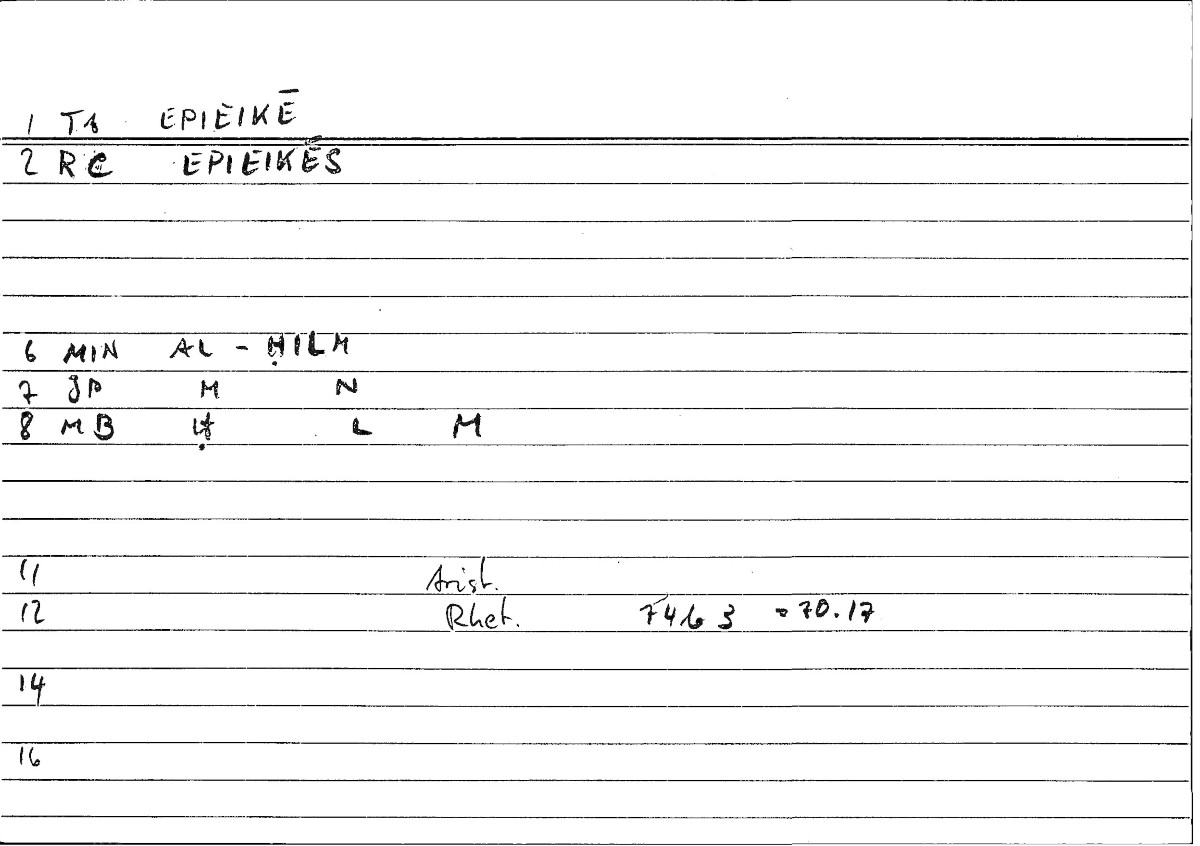 1 Ts EPIEIKĒ
2 RC EPIEIKĒS
6 MIN AL - ḤILM
7 JP M N
8 MB Ḥ L M
11 Arist.
12 Rhet. 74b 3 = 70.17
14
16